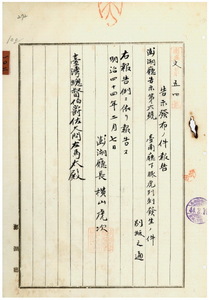 文 五四
告示發布ノ件報告
澎湖廳告示第六號 臺南廳下豚虎列剌發生ノ件
別紙之通
右報告例ニ依リ報告ス
明治四十四年二月七日
澎湖廳長 橫山虎次
臺灣總督伯爵佐久間左馬太殿
澎湖廳